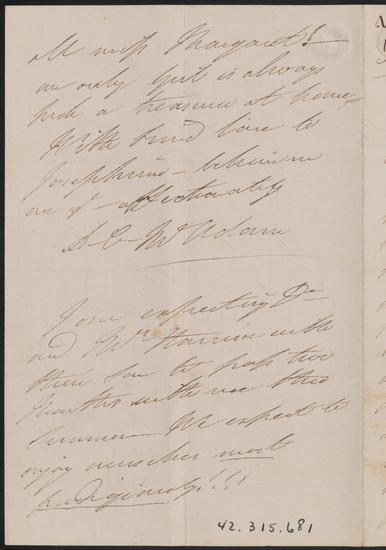 all miss Margaret!
an only girl is always
such a treasure at home—
With kind love to
Josephine — believe me
ever yr affectionately
McAdam
I am expecting Dr
and Mrs Harris with
their son to pass two
Months with me this
Summer We expect to
enjoy ourselves most
prodigiously!!!!
42.315.681